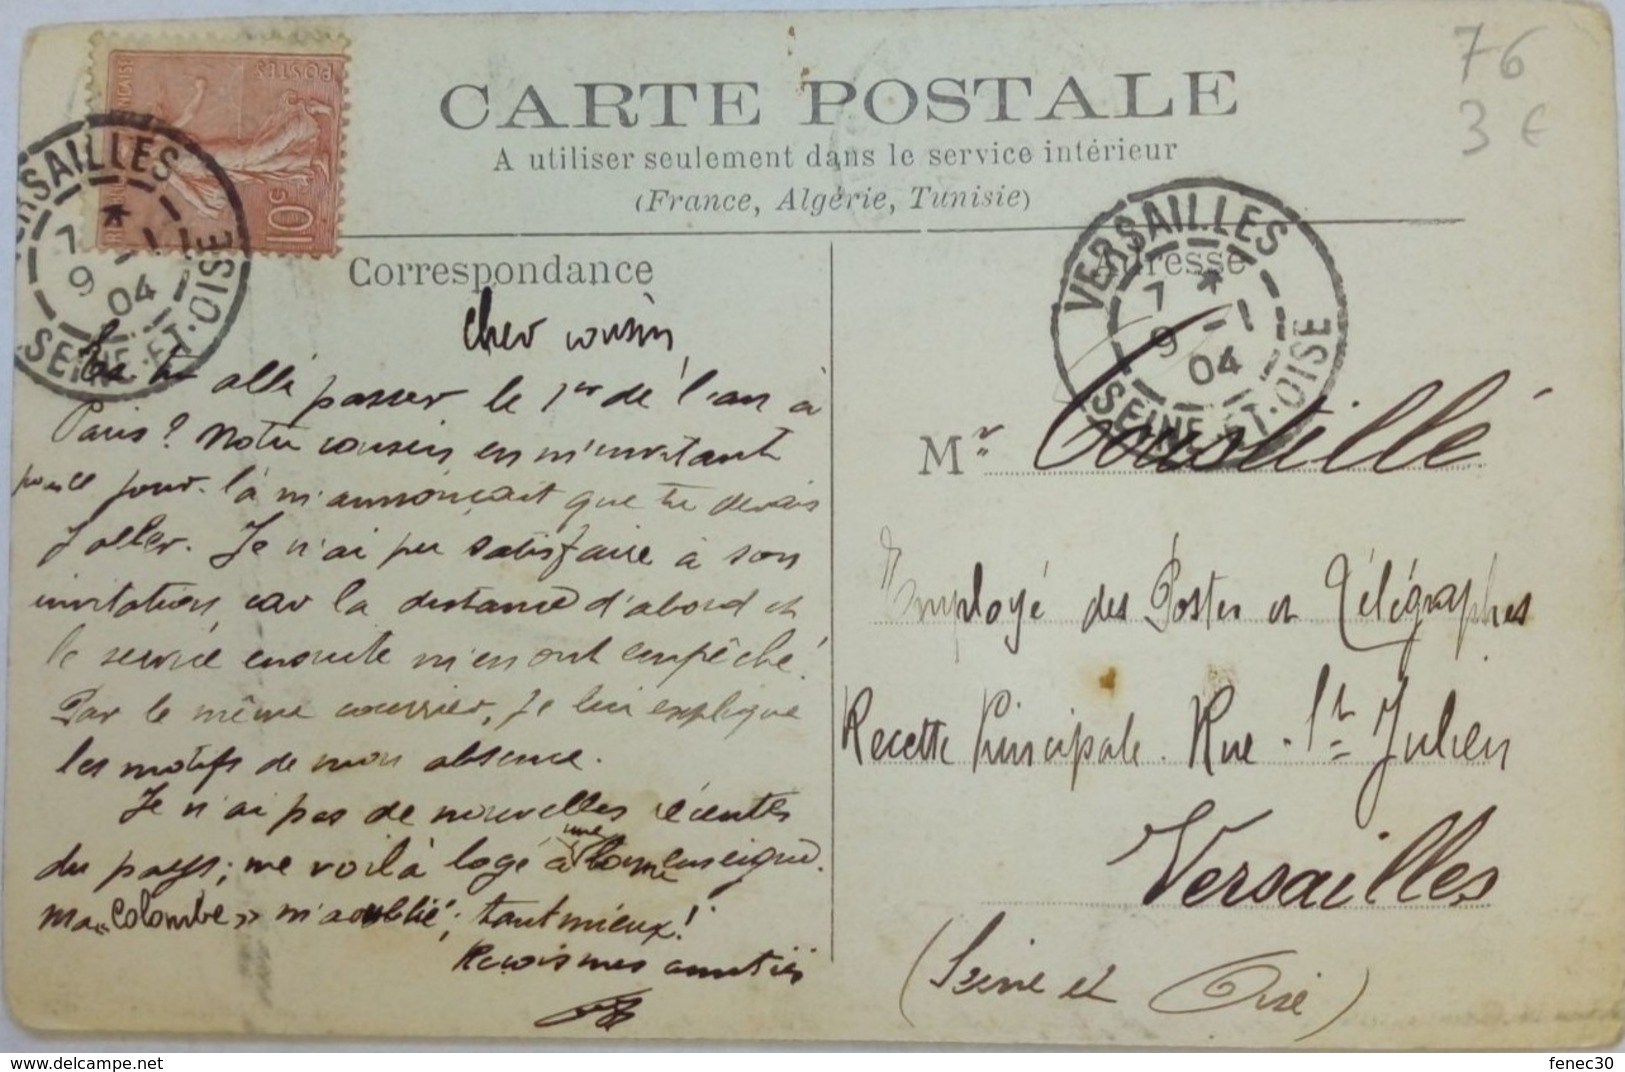 CARTE POSTALE
A utiliser seulement dans le service intérieur
(France, Algérie, Tunisie)
76
3 €
POSTES
10c
VERSAILLES
7 *
9 - 1
04
SEINE-ET-OISE
Correspondance
Adresse
VERSAILLES
7 *
9 - 1
04
SEINE-ET-OISE
cher cousin,
Es tu allé passer le 1er de l'an à
Paris? Notre cousin en m'invitant
pour ce jour-là m'annonçait que tu devais
y aller. Je n'ai pu satisfaire à son
invitation, car la distance d'abord et
le service ensuite m'en ont empêché.
Par le même courrier, je lui explique
les motifs de mon absence.
Je n'ai pas de nouvelles récentes
du pays; me voilà logé à une bonne enseigne.
Ma «Colombe» m'a oublié; tant mieux!
Reçois mes amitiés
Mr Coustillé
Employé des Postes et Télégraphes
Recette Principale. Rue St Julien
Versailles
(Seine et Oise)
delcampe.net
fenec30